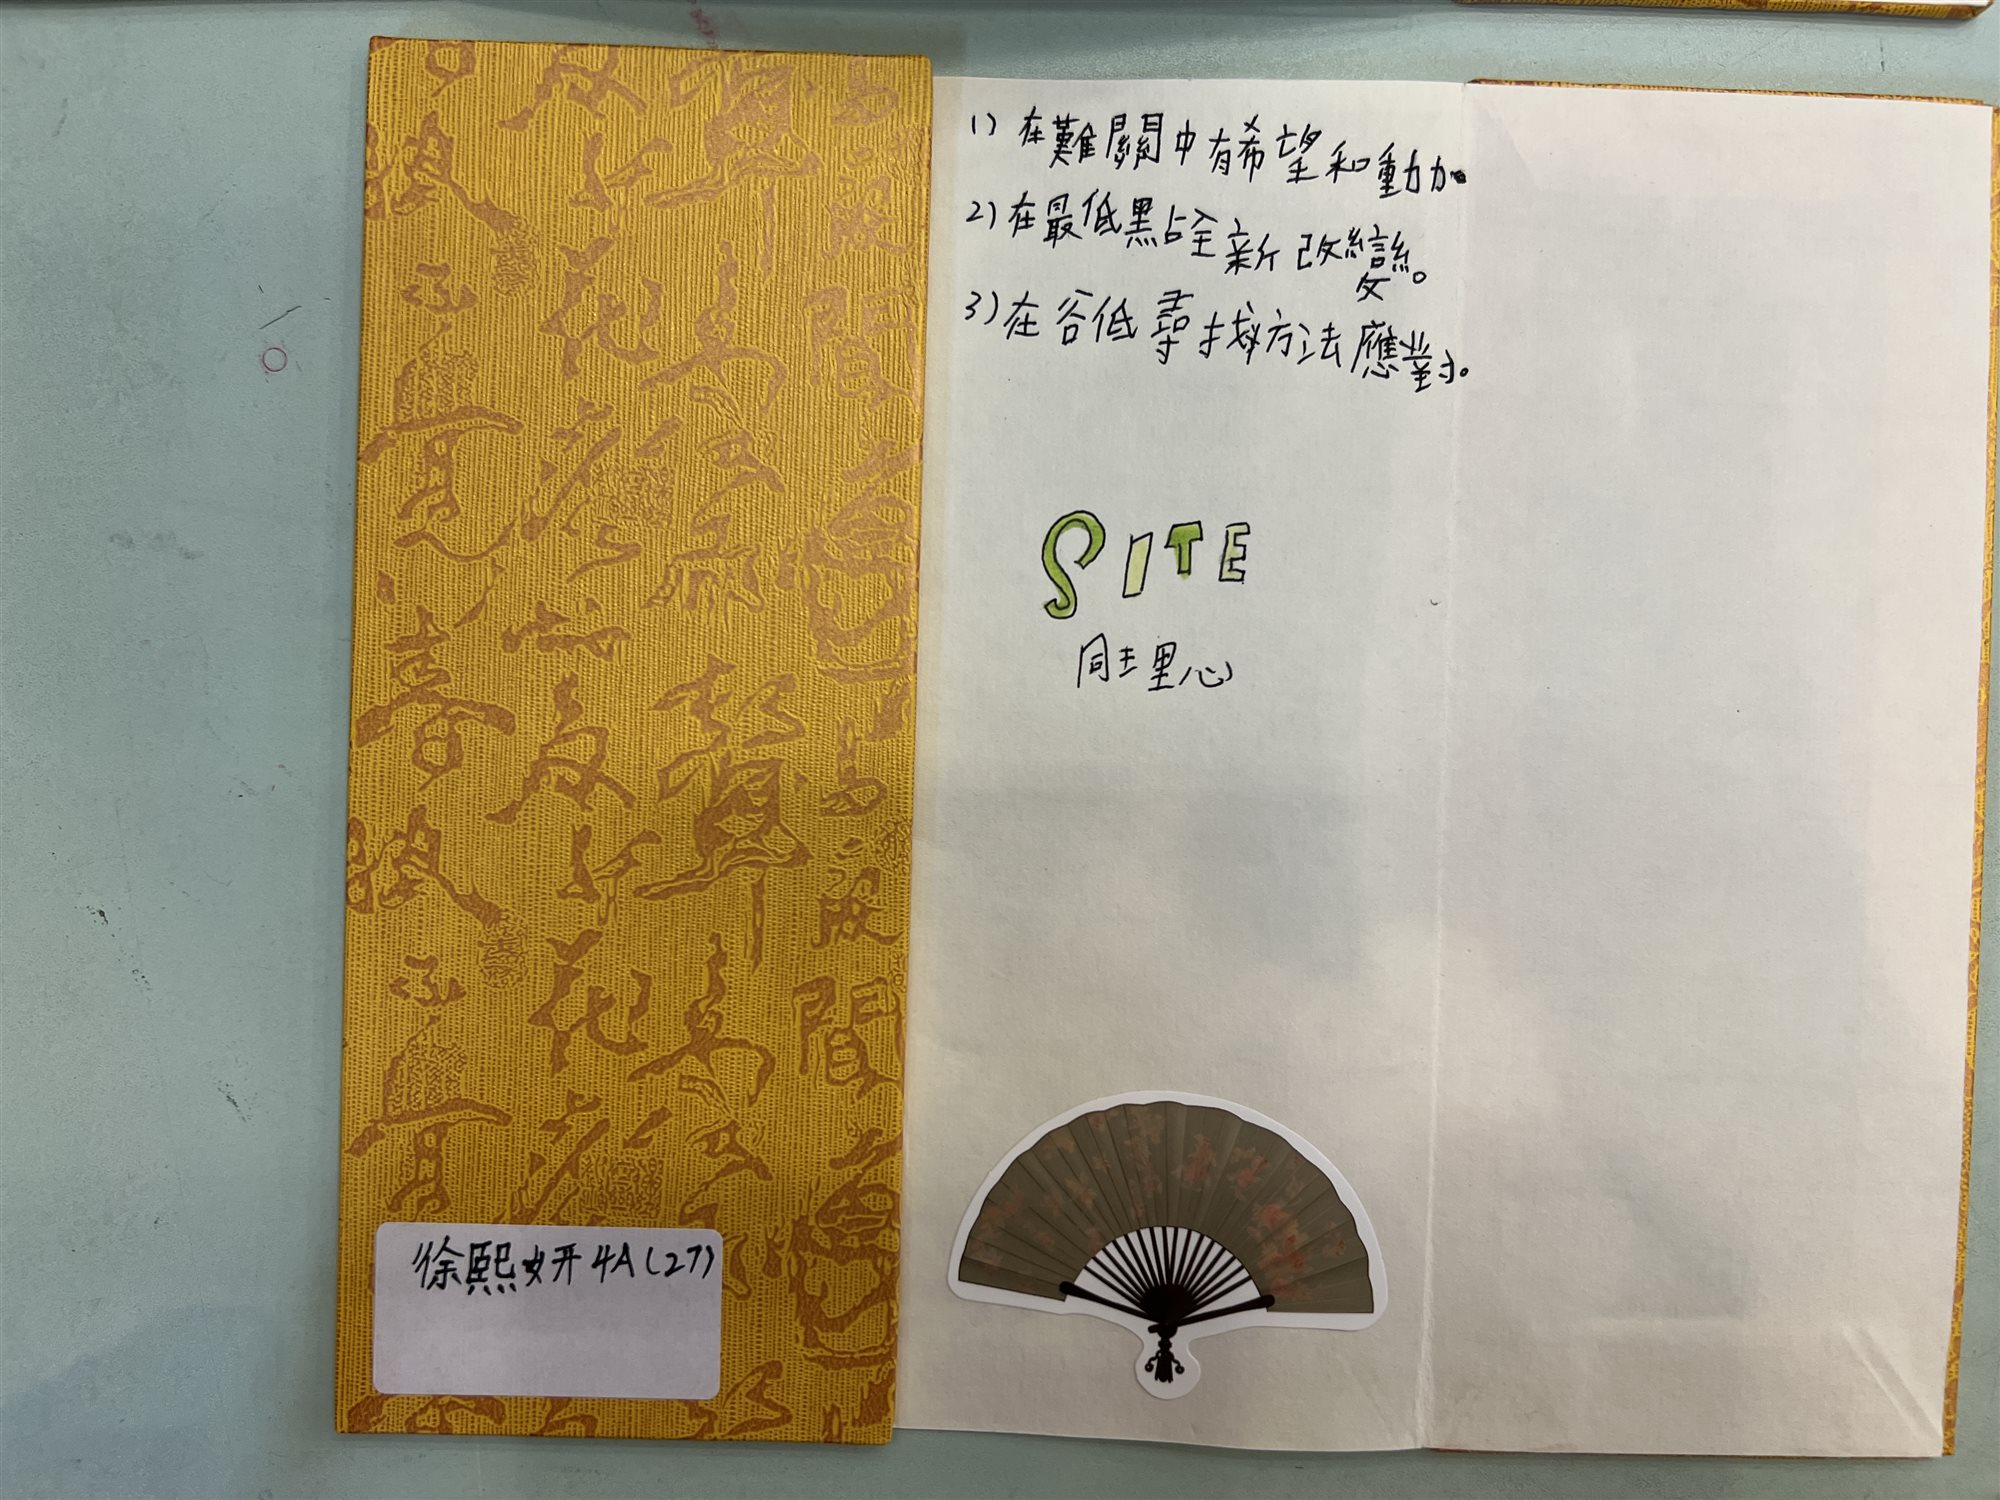 1) 在難關中有希望和動力。
2) 在最低點全新改變。
3) 在谷低尋找方法應對。
SITE
同理心
徐熙妍 4A(27)